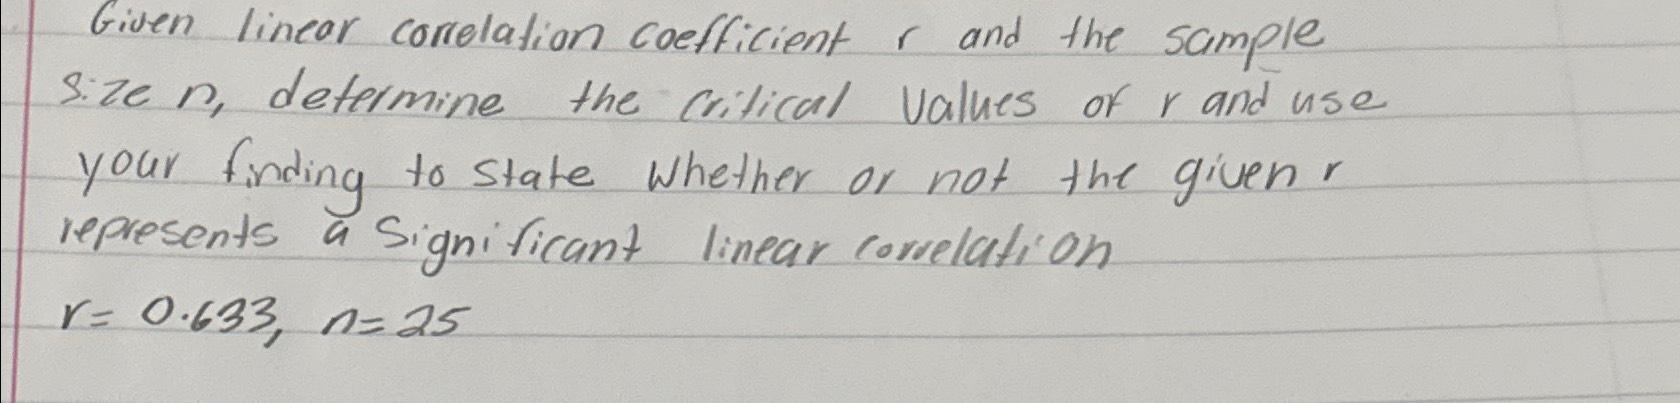 Given linear correlation coefficient r and the sample
size n, determine the critical values of r and use
your finding to state whether or not the given r
represents a significant linear correlation
r= 0.633, n=25